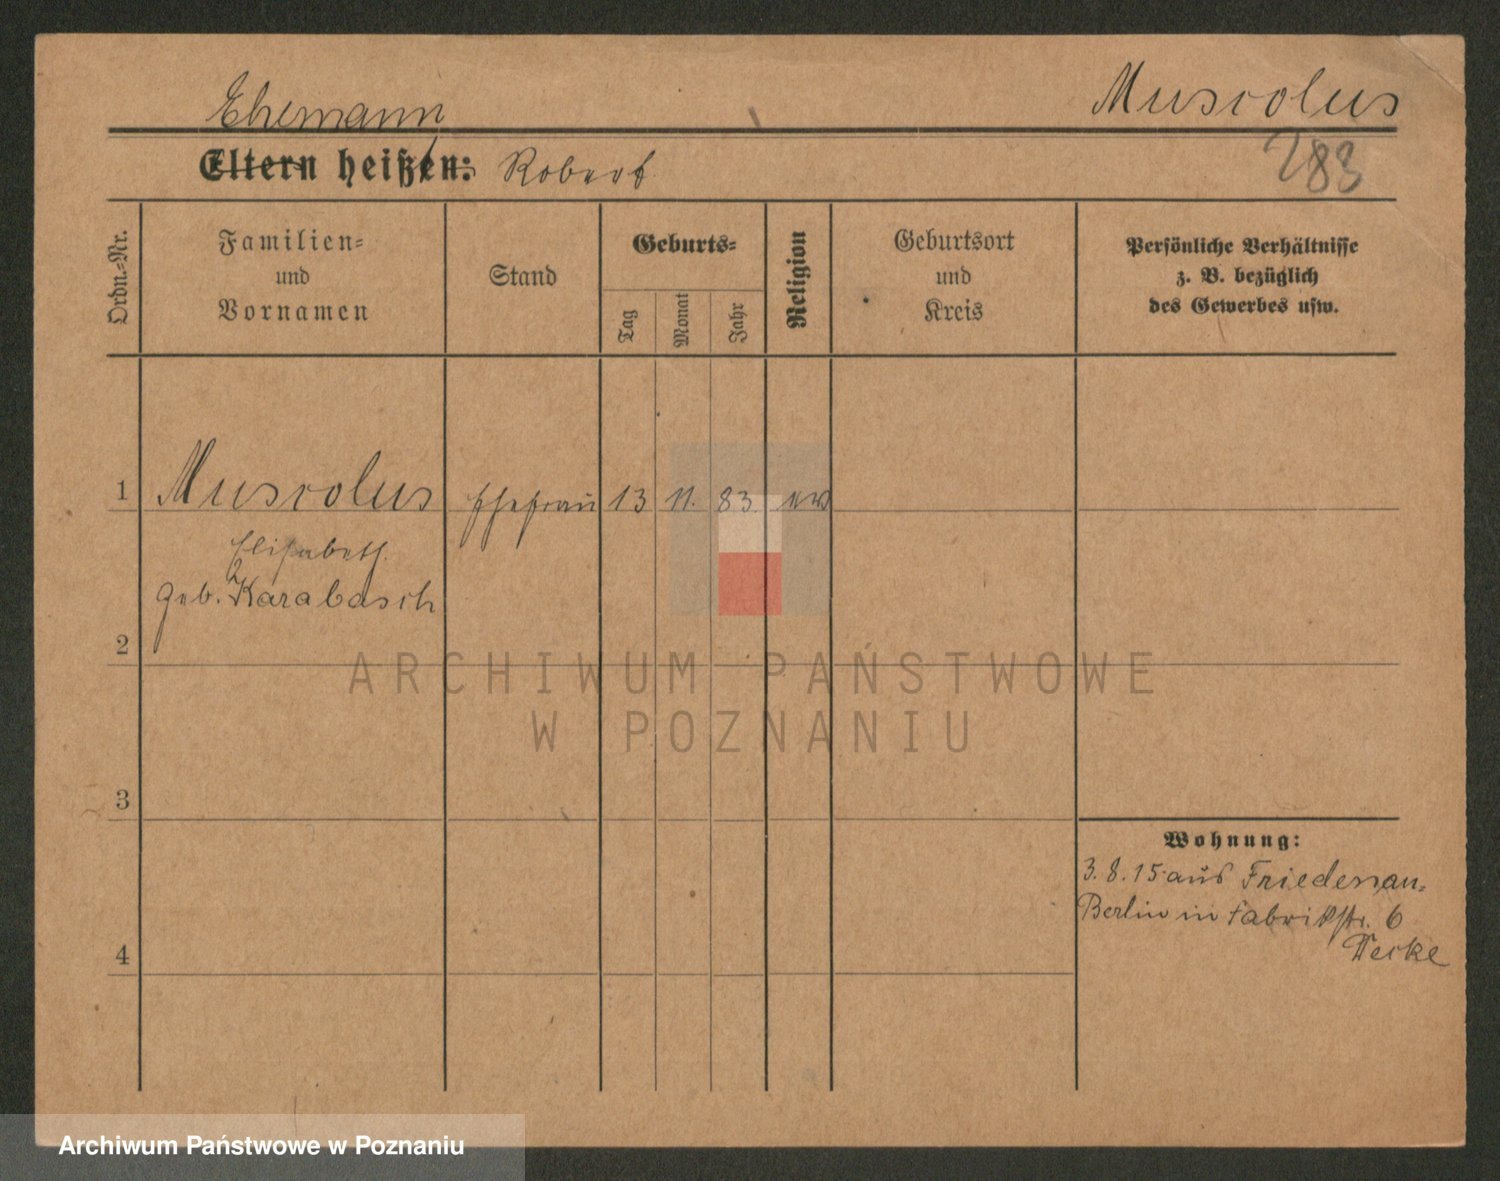 Ehemann
Musiolus
Eltern heißen: Robert
283
Ordn.=Nr.
Familien=
und
Vornamen
Stand
Geburts=
Tag
Monat
Jahr
Religion
Geburtsort
und
Kreis
Persönliche Verhältnisse
z. B. bezüglich
des Gewerbes usw.
1 Musiolus Ehefrau 13 11. 83. ev
Elisabeth
geb. Karabasch
2
ARCHIWUM PAŃSTWOWE
W POZNANIU
3
Wohnung:
3.8.15 aus Friedenau-
Berlin in Fabrikstr. 6
4
Archiwum Państwowe w Poznaniu